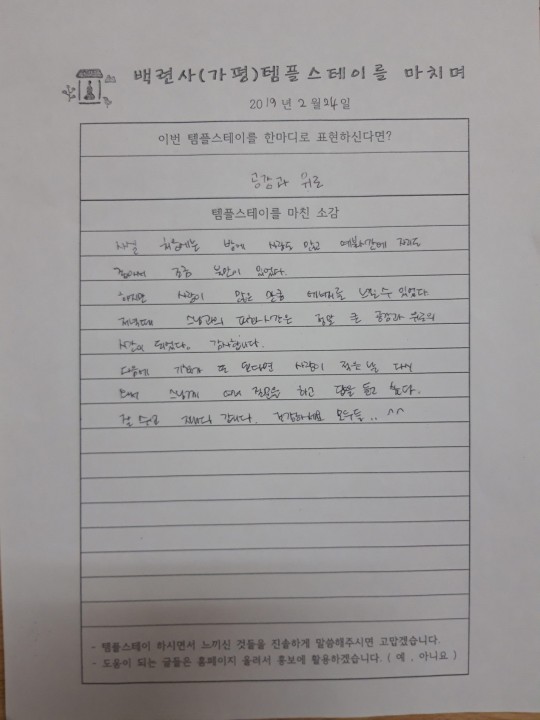 백련사(가평)템플스테이를 마치며
2019년 2월 24일
이번 템플스테이를 한마디로 표현하신다면?
공감과 위로
템플스테이를 마친 소감
사실 처음에는 방에 사람도 많고 예불시간에 자리도
좁아서 조금 불만이 있었다.
하지만 사람이 많은 만큼 에너지를 느낄수 있었다
저녁때 스님과의 대화시간은 정말 큰 공감과 위로의
시간이 되었다. 감사합니다.
다음에 기회가 또 된다면 사람이 적은 날 다시
와서 스님께 질문을 하고 답을 듣고 싶다.
잘 쉬고 갑니다. 건강하세요 모두들.. ^^
- 템플스테이 하시면서 느끼신 것들을 진솔하게 말씀해주시면 고맙겠습니다.
- 도움이 되는 글들은 홈페이지 올려서 홍보에 활용하겠습니다. ( 예 , 아니요 )